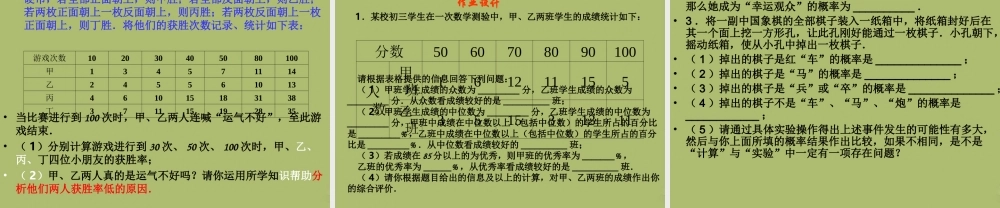 正面朝上，则丁胜．将他们的获胜次数记录、统计如下表：
若两枚正面朝上一枚反面朝上，则丙胜；若两枚反面朝上一枚
游戏次数 10 20 30 40 50 80 100
甲 1 3 4 5 7 11 14
乙 2 4 5 5 6 10 13
丙 4 6 10 15 18 31 38
• 当比赛进行到 100 次时，甲、乙两人连喊“运气不好”，至此游
戏结束．
• （1）分别计算游戏进行到 30 次、50 次、100 次时，甲、乙、
丙、丁四位小朋友的获胜率；
• （2）甲、乙两人真的是运气不好吗？请你运用所学知识帮助分
析他们两人获胜率低的原因．
作业设计
1．某校初三学生在一次数学测验中，甲、乙两班学生的成绩统计如下：
分数 50 60 70 80 90 100
12 11 15 5
请根据表格提供的信息回答下列问题：
（1）甲班学生成绩的众数为______分，乙班学生成绩的众数为
______分．从众数看成绩较好的是______班；
（2）甲班学生成绩的中位数为______分，乙班学生成绩的中位数为
______分，甲班中成绩在中位数以上（包括中位数）的学生所占的百分比
是______%，乙班中成绩在中位数以上（包括中位数）的学生所占的百分
比是______%．从中位数看成绩较好的是______班；
（3）若成绩在 85 分以上的为优秀，则甲班的优秀率为______%，
乙班的优秀率为______%，从优秀率看成绩较好的是______班．
（4）请你根据题目给出的信息及以上的计算，对甲、乙两班的成绩作出你
的综合评价．
那么她成为“幸运观众”的概率为______．
• 3．将一副中国象棋的全部棋子装入一纸箱中，将纸箱封好后在
其一个面上挖一方形孔，让此孔刚好能通过一枚棋子．小孔朝下，
摇动纸箱，使从小孔中掉出一枚棋子．
• （1）掉出的棋子是红“车”的概率是______；
• （2）掉出的棋子是“马”的概率是______；
• （3）掉出的棋子是“兵”或“卒”的概率是______；
• （4）掉出的棋子不是“车”、“马”、“炮”的概率是
______；
• （5）请通过具体实验操作得出上述事件发生的可能性有多大，
然后与你上面所填的概率结果作出比较，如果不相同，是不是
“计算”与“实验”中一定有一项存在问题？